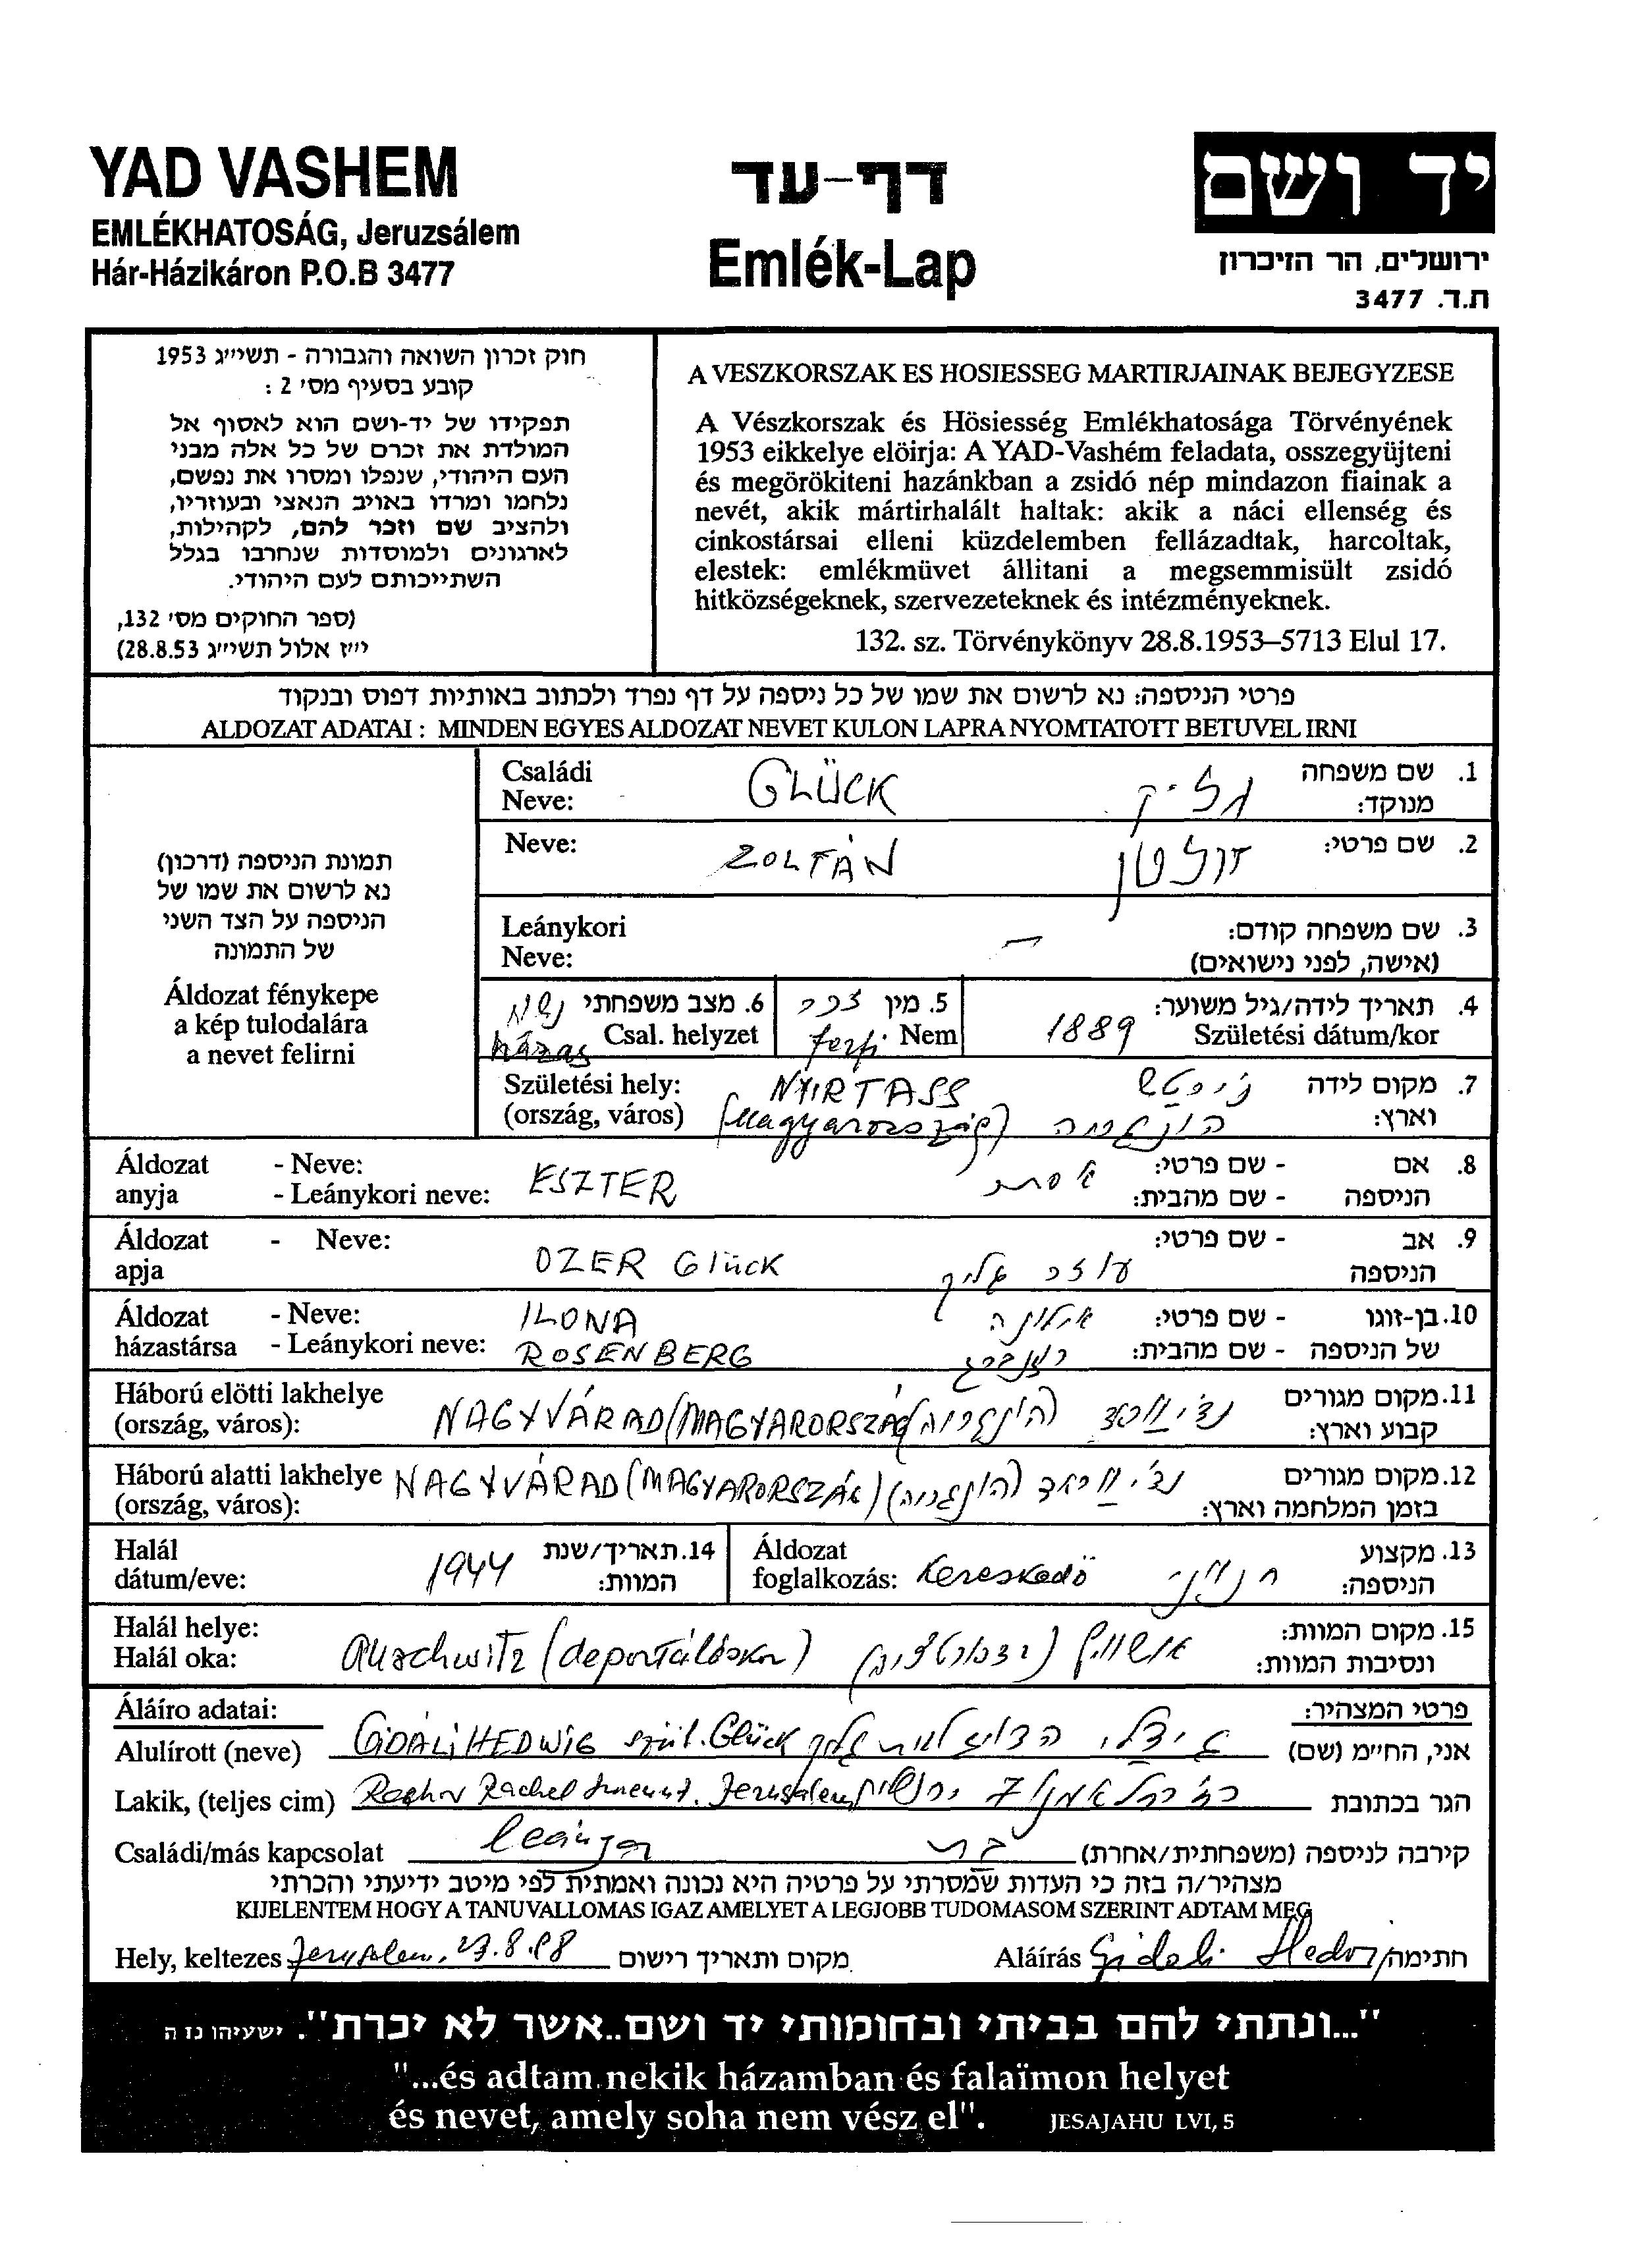 YAD VASHEM
EMLÉKHATOSÁG, Jeruzsálem
Hár-Házikáron P.O.B 3477
דף-עד
Emlék-Lap
יד ושם
ירושלים, הר הזיכרון
ת.ד. 3477
חוק זכרון השואה והגבורה - תשי״ג 1953
קובע בסעיף מס׳ 2 :
תפקידו של יד-ושם הוא לאסוף אל
המולדת את זכרם של כל אלה מבני
העם היהודי, שנפלו ומסרו את נפשם,
נלחמו ומרדו באויב הנאצי ובעוזריו,
ולהציב שם וזכר להם, לקהילות,
לארגונים ולמוסדות שנחרבו בגלל
השתייכותם לעם היהודי.
(ספר החוקים מס׳ 132,
י״ז אלול תשי״ג 28.8.53)
A VESZKORSZAK ES HOSIESSEG MARTIRJAINAK BEJEGYZESE
A Vészkorszak és Hösiesség Emlékhatosága Törvényének
1953 eikkelye elöirja: A YAD-Vashém feladata, osszegyüjteni
és megörökiteni hazánkban a zsidó nép mindazon fiainak a
nevét, akik mártirhalált haltak: akik a náci ellenség és
cinkostársai elleni küzdelemben fellázadtak, harcoltak,
elestek: emlékmüvet állitani a megsemmisült zsidó
hitközségeknek, szervezeteknek és intézményeknek.
132. sz. Törvénykönyv 28.8.1953–5713 Elul 17.
פרטי הניספה: נא לרשום את שמו של כל ניספה על דף נפרד ולכתוב באותיות דפוס ובנקוד
ALDOZAT ADATAI : MINDEN EGYES ALDOZAT NEVET KULON LAPRA NYOMTATOTT BETUVEL IRNI
תמונת הניספה (דרכון)
נא לרשום את שמו של
הניספה על הצד השני
של התמונה
Áldozat fénykepe
a kép tulodalára
a nevet felirni
Családi Neve: GLÜCK גליק 1. שם משפחה מנוקד:
Neve: ZOLTÁN זולטן 2. שם פרטי:
Leánykori Neve: — 3. שם משפחה קודם: (אישה, לפני נישואים)
4. תאריך לידה/גיל משוער: Születési dátum/kor 1889
5. מין זכר Nem ferfi
6. מצב משפחתי נשוי Csal. helyzet házas
Születési hely: (ország, város) NYIRTASS (Magyarország) הונגריה 7. מקום לידה וארץ:
Áldozat anyja - Neve: - Leánykori neve: ESZTER אסתר 8. אם הניספה - שם פרטי: - שם מהבית:
Áldozat apja - Neve: OZER Glück עוזר גליק 9. אב הניספה - שם פרטי:
Áldozat házastársa - Neve: ILONA אילונה 10. בן-זוגו של הניספה - שם פרטי:
- Leánykori neve: ROSENBERG רוזנברג - שם מהבית:
Háború elötti lakhelye (ország, város): NAGYVÁRAD (MAGYARORSZÁG) (הונגריה) 11. מקום מגורים קבוע וארץ:
Háború alatti lakhelye (ország, város): NAGYVÁRAD (MAGYARORSZÁG) (הונגריה) 12. מקום מגורים בזמן המלחמה וארץ:
Halál dátum/eve: 1944 14. תאריך/שנת המוות:
Áldozat foglalkozás: Kereskedö חנווני 13. מקצוע הניספה:
Halál helye: Halál oka: Auschwitz (deportáláskor) אושוויץ 15. מקום המוות: ונסיבות המוות:
Áláíro adatai: פרטי המצהיר:
Alulírott (neve) GIDALI HEDWIG szül. Glück גידלי הדויג גליק אני, החי״מ (שם)
Lakik, (teljes cim) Rachel Jerusalem ירושלים הגר בכתובת
Családi/más kapcsolat leánya בת קירבה לניספה (משפחתית/אחרת)
מצהיר/ה בזה כי העדות שמסרתי על פרטיה היא נכונה ואמתית לפי מיטב ידיעתי והכרתי
KIJELENTEM HOGY A TANUVALLOMAS IGAZ AMELYET A LEGJOBB TUDOMASOM SZERINT ADTAM MEG
Hely, keltezes Jerusalem, מקום ותאריך רישום Aláírás Gideli Hedvig חתימה
"...ונתתי להם בביתי ובחומותי יד ושם..אשר לא יכרת". ישעיהו נו ה
"...és adtam nekik házamban és falaïmon helyet
és nevet, amely soha nem vész el". JESAJAHU LVI, 5